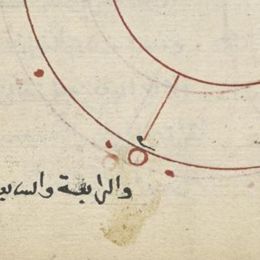 والرابعة والسابعة